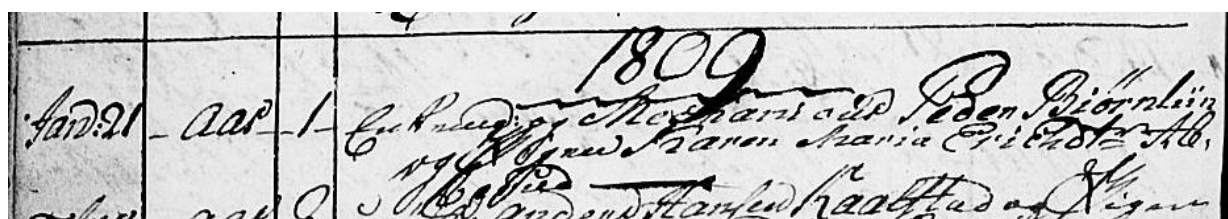 1809
Jan: 21 - Aas - 1 - Enkemd: og Mechanicus Peder Biørnliin
og Pigen Karen Maria Erichdtr Ab,
Anders Hansen Kaalstad og Pigen